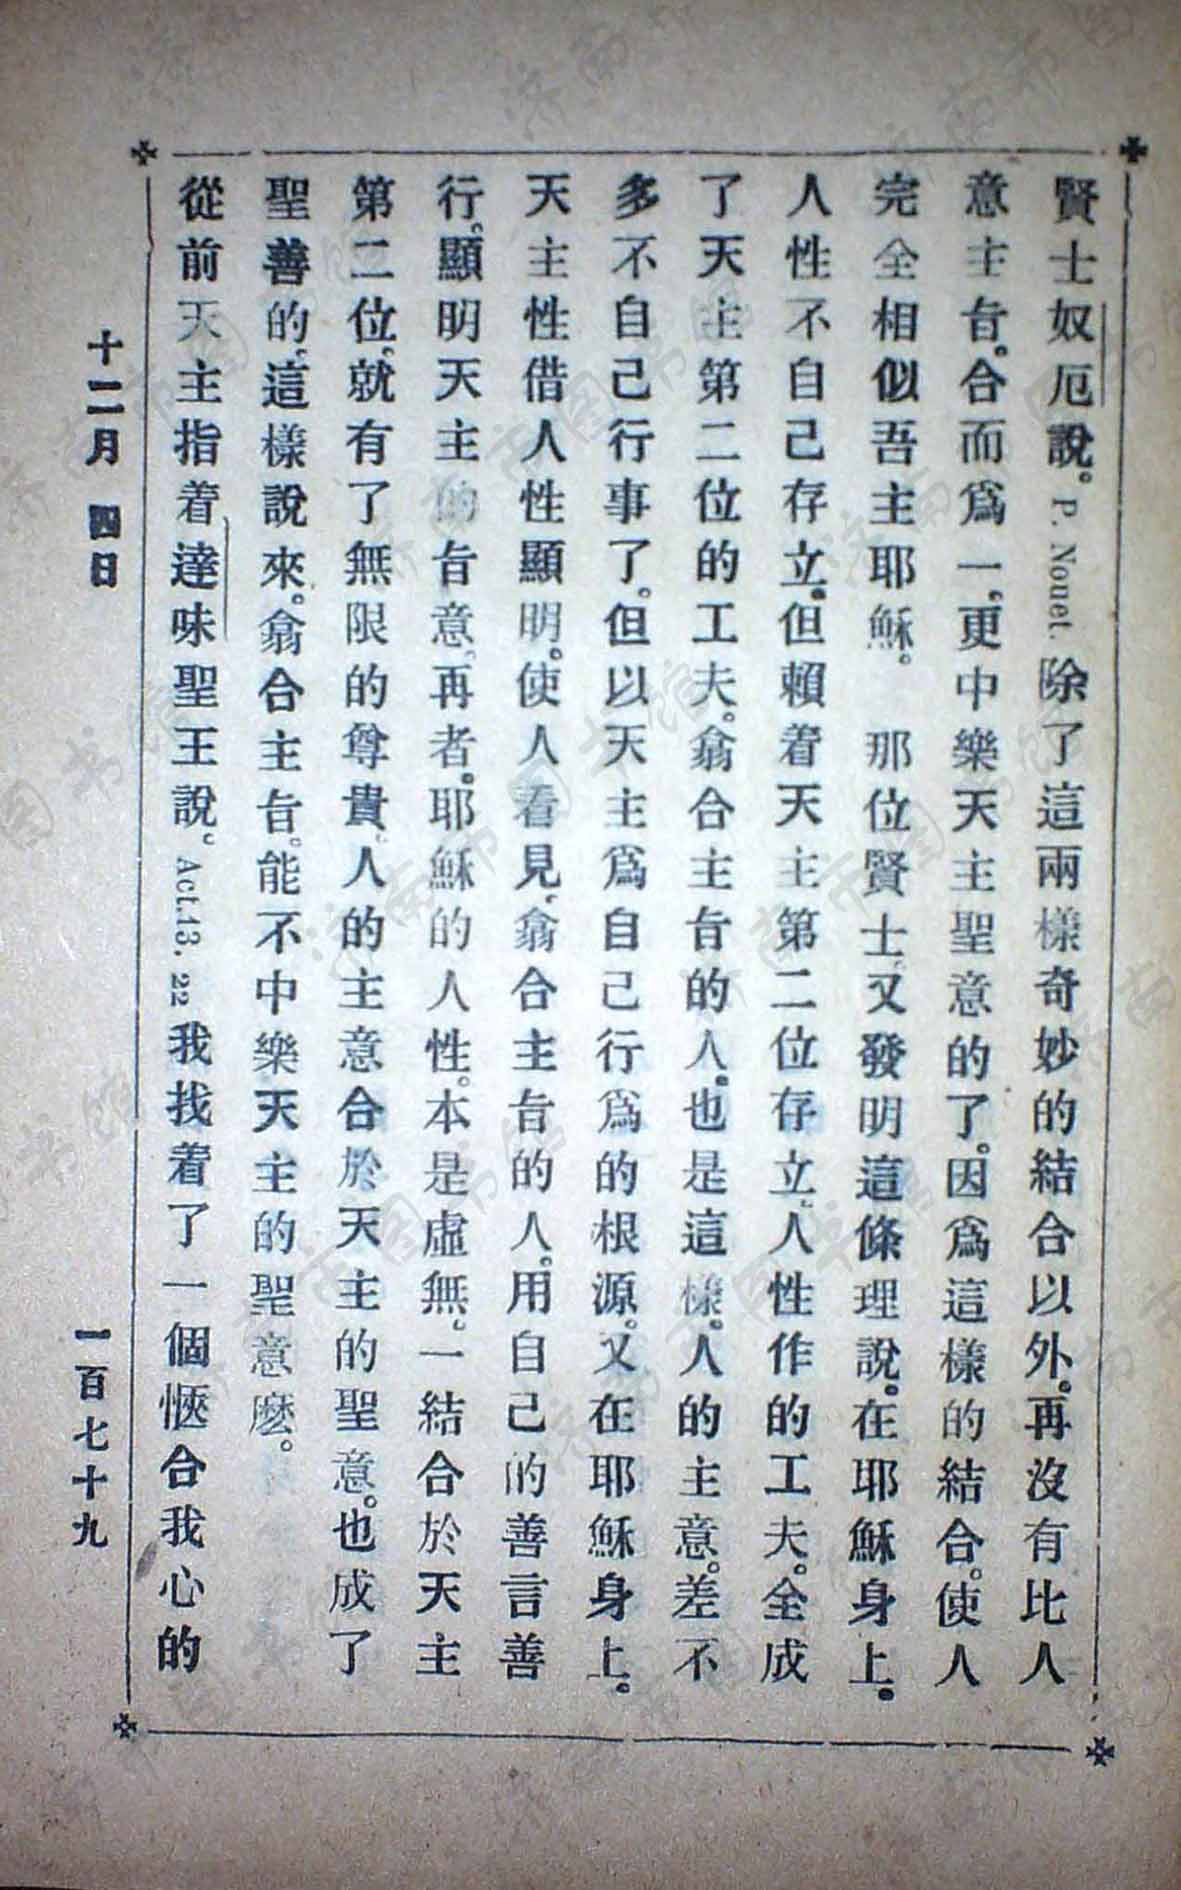 賢士奴厄說。P. Nouet. 除了這兩樣奇妙的結合以外。再沒有比人
意主旨。合而爲一。更中樂天主聖意的了。因爲這樣的結合。使人
完全相似吾主耶穌。 那位賢士、又發明這條理說。在耶穌身上。
人性不自己存立。但賴着天主第二位存立、人性作的工夫。全成
了天主第二位的工夫。翕合主旨的人。也是這樣。人的主意。差不
多不自己行事了。但以天主爲自己行爲的根源。又在耶穌身上。
天主性借人性顯明。使人看見、翕合主旨的人。用自己的善言善
行。顯明天主的旨意。再者。耶穌的人性。本是虛無。一結合於天主
第二位、就有了無限的尊貴、人的主意合於天主的聖意。也成了
聖善的、這樣說來。翕合主旨。能不中樂天主的聖意麽。
從前天主指着達味聖王說。Act. 13. 22 我找着了一個愜合我心的
十二月 四日
一百七十九
济南市图书馆